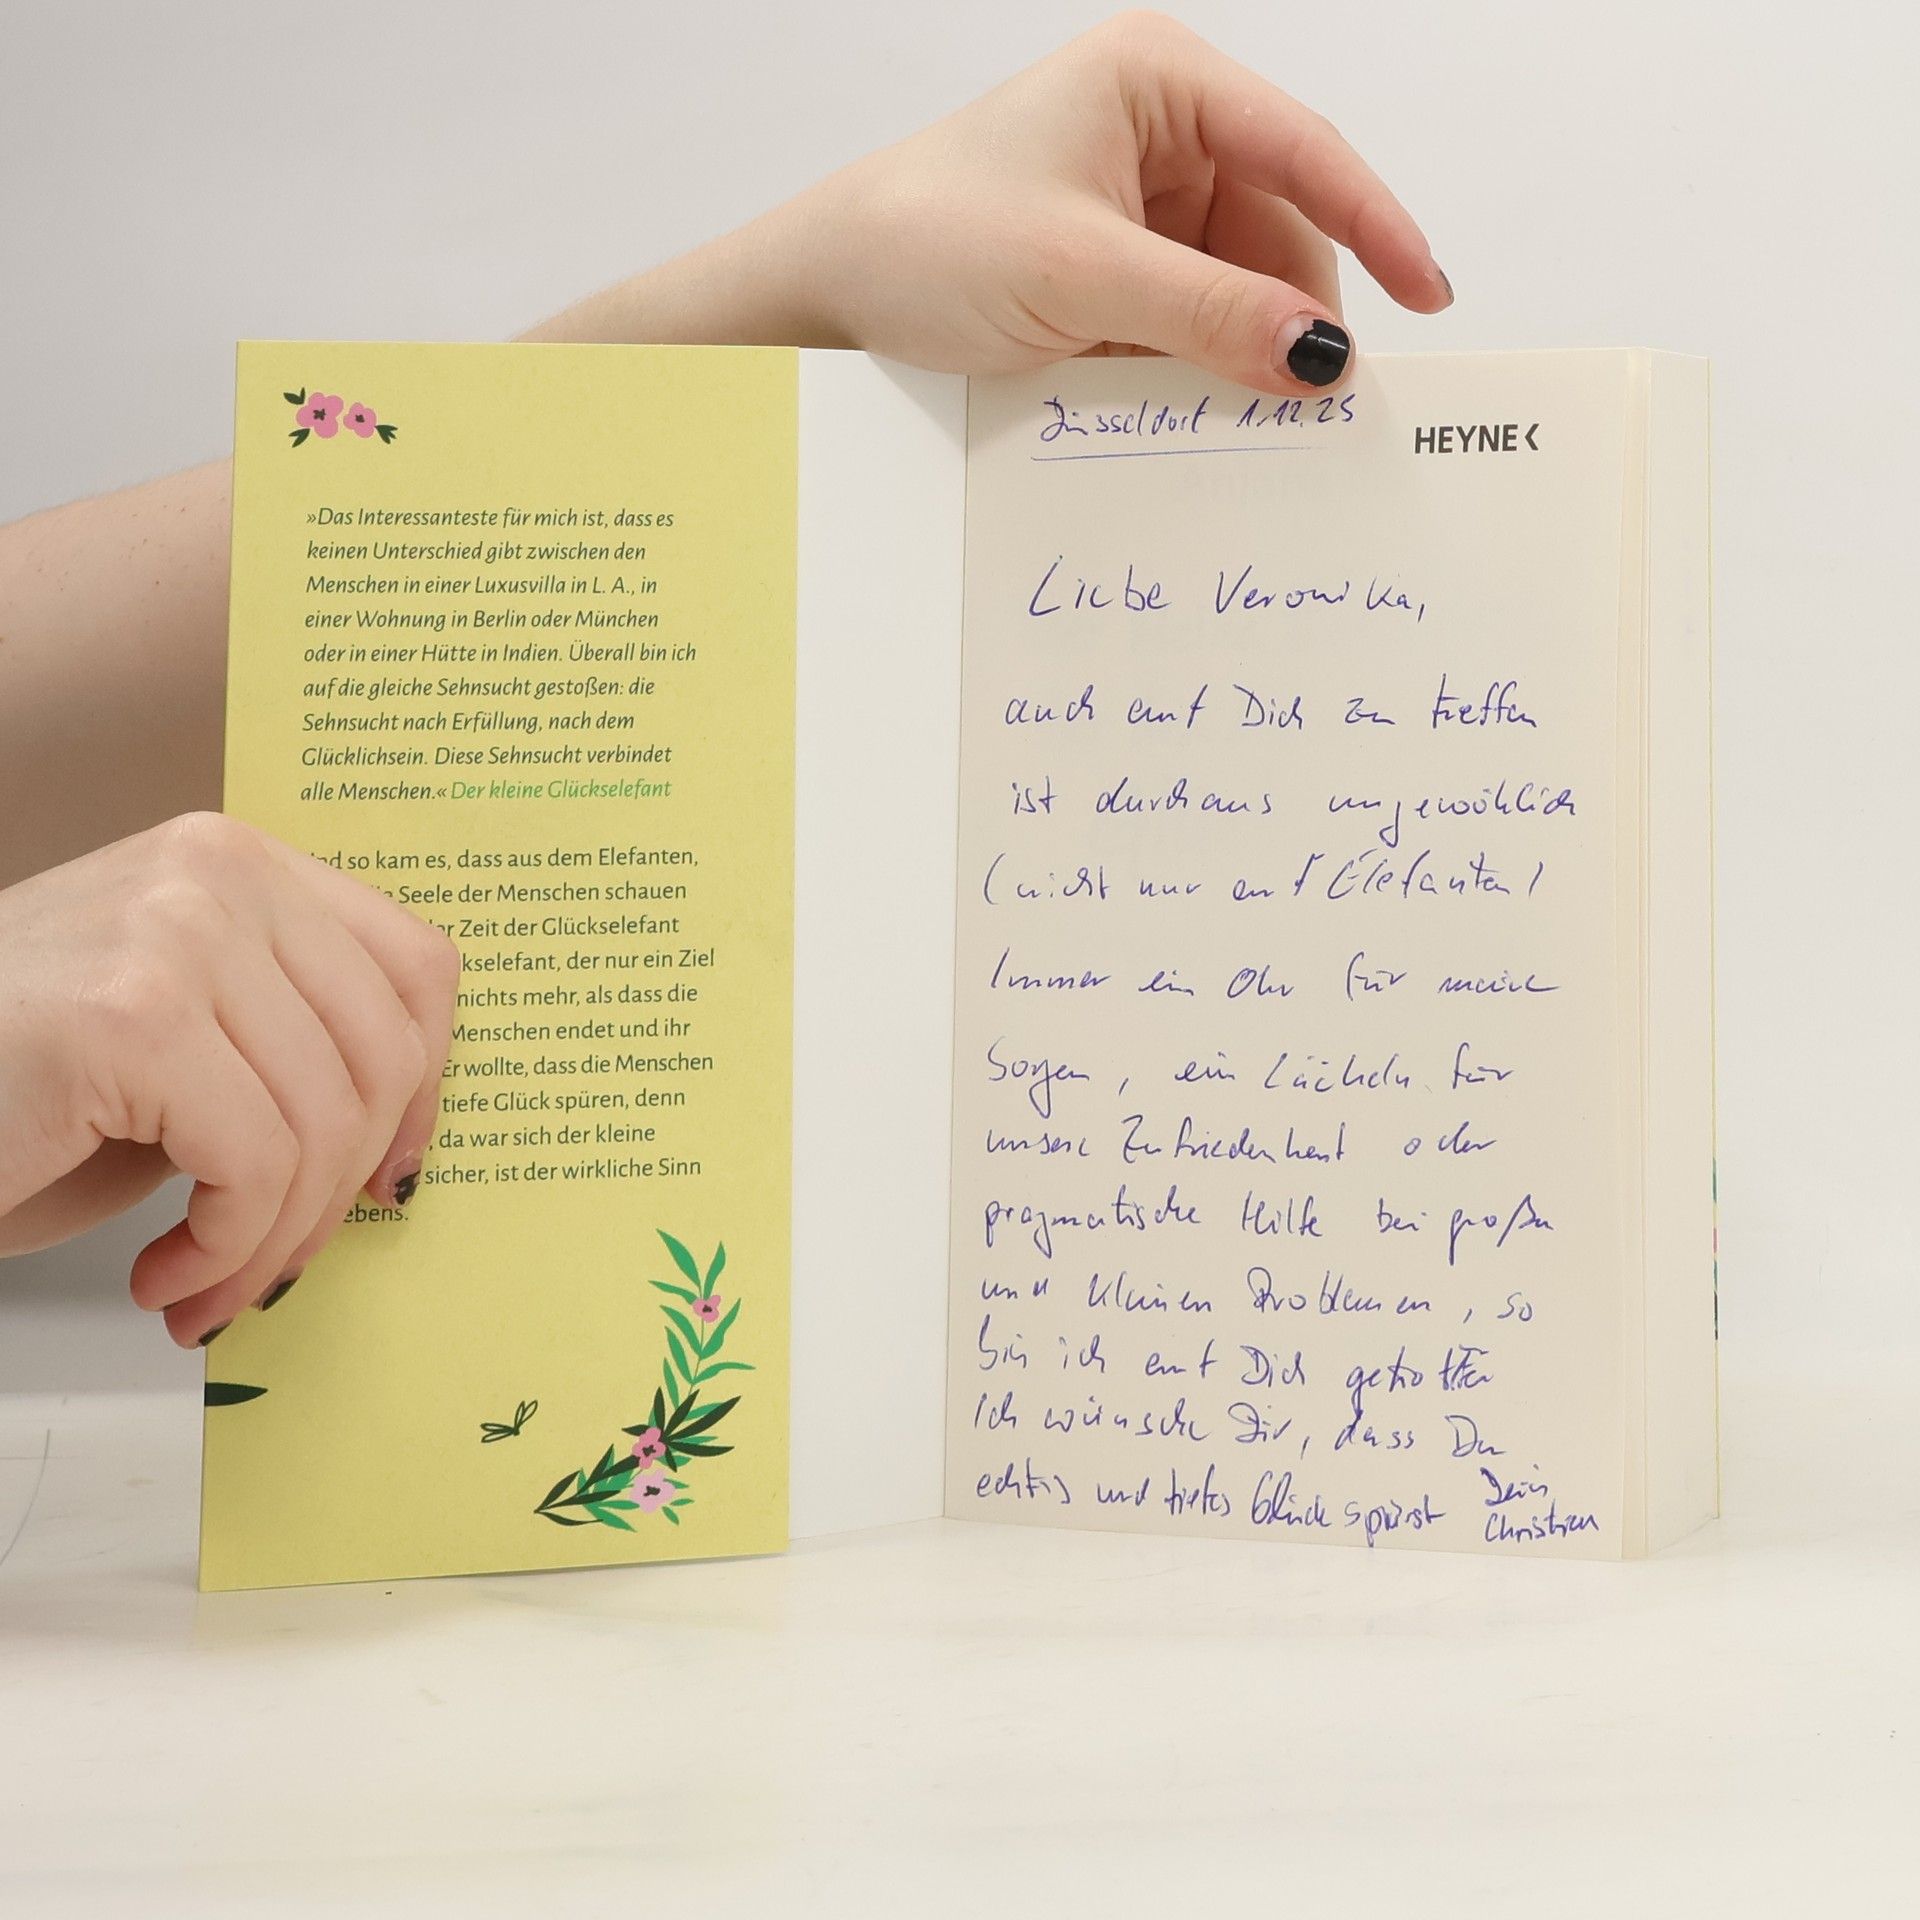 »Das Interessanteste für mich ist, dass es
keinen Unterschied gibt zwischen den
Menschen in einer Luxusvilla in L. A., in
einer Wohnung in Berlin oder München
oder in einer Hütte in Indien. Überall bin ich
auf die gleiche Sehnsucht gestoßen: die
Sehnsucht nach Erfüllung, nach dem
Glücklichsein. Diese Sehnsucht verbindet
alle Menschen.« Der kleine Glückselefant
so kam es, dass aus dem Elefanten,
Seele der Menschen schauen
Zeit der Glückselefant
kselefant, der nur ein Ziel
nichts mehr, als dass die
Menschen endet und ihr
Er wollte, dass die Menschen
tiefe Glück spüren, denn
, da war sich der kleine
sicher, ist der wirkliche Sinn
ebens.
Düsseldorf 1.12.25
HEYNE<
Liebe Veronika,
auch auf Dich zu treffen
ist durchaus ungewöhlich
(nicht nur auf Elefanten)
Immer ein Ohr für meine
Sorgen, ein Lächeln für
unsere Zufriedenheit oder
pragmatische Hilfe bei großen
und kleinen Problemen, so
bin ich auf Dich getroffen
Ich wünsche Dir, dass Du
echtes und tiefes Glück spürst
Dein
Christian